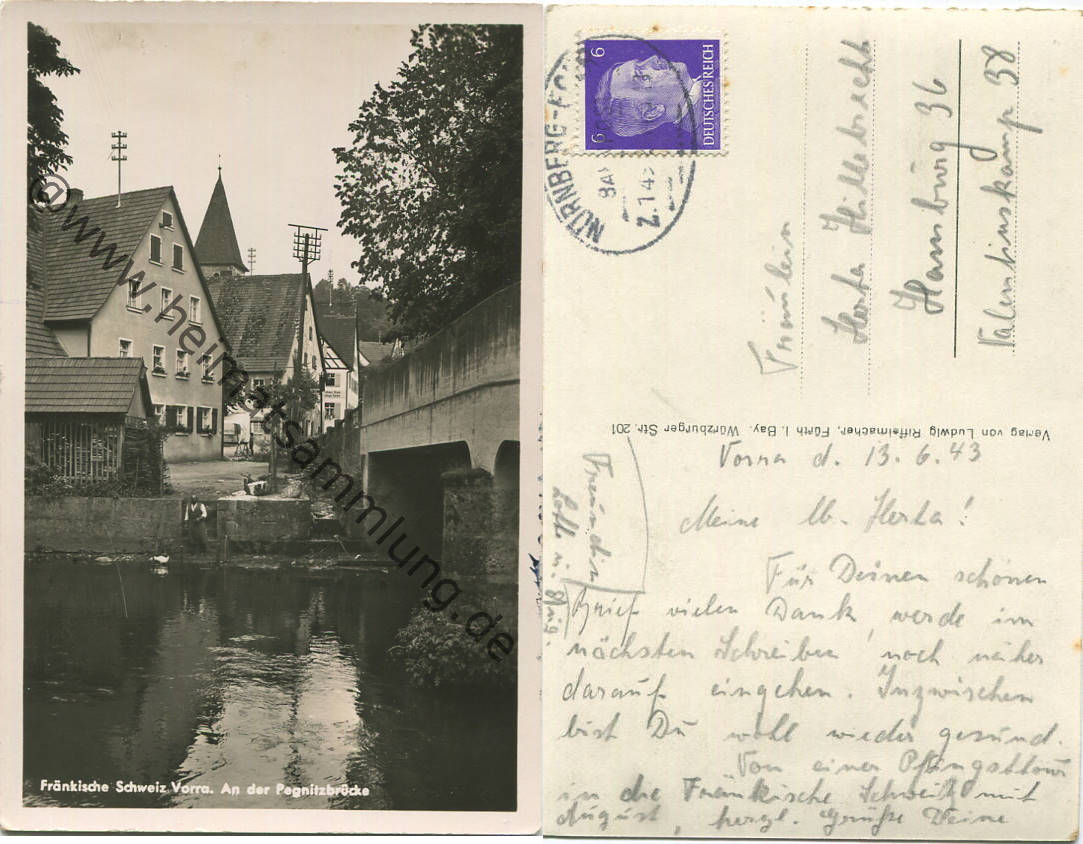 @www.heimatsammlung.de
Fränkische Schweiz Vorra. An der Pegnitzbrücke
DEUTSCHES REICH
6 6
NÜRNBERG-
2.7.43
Fräulein
Herta Hillebrecht
Hamburg 36
Valentinskamp 38
Verlag von Ludwig Riffelmacher, Fürth i. Bay. Würzburger Str. 201
Vorra d. 13.6.43
Meine lb. Herta!
Für Deinen schönen
Brief vielen Dank, werde im
nächsten Schreiben noch näher
darauf eingehen. Inzwischen
bist Du wohl wieder gesund.
Von einer Pfingsttour
in die Fränkische Schweiz mit
August, herzl. Grüße Deine
Freundin
Lotte u. Aug.